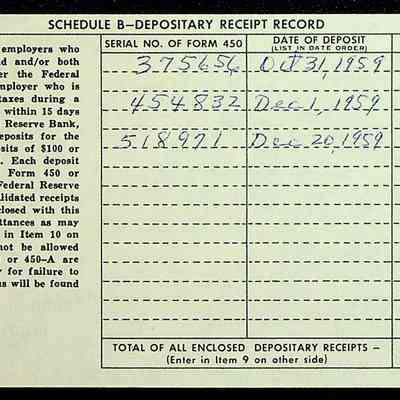 SCHEDULE B—DEPOSITARY RECEIPT RECORD
employers who
d and/or both
er the Federal
mployer who is
taxes during a
within 15 days
Reserve Bank,
eposits for the
sits of $100 or
. Each deposit
Form 450 or
Federal Reserve
lidated receipts
closed with this
ttances as may
in Item 10 on
not be allowed
or 450-A are
y for failure to
s will be found
SERIAL NO. OF FORM 450
DATE OF DEPOSIT
(LIST IN DATE ORDER)
375656 Oct 31, 1959
454832 Dec 1, 1959
518971 Dec 20, 1959
TOTAL OF ALL ENCLOSED DEPOSITARY RECEIPTS –
(Enter in Item 9 on other side)